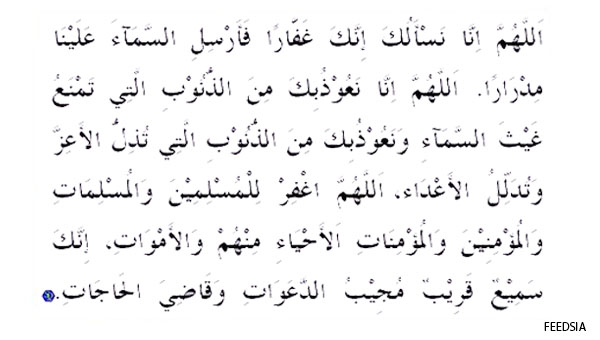 اَللَّهُمَّ اِنَّا نَسْأَلُكَ اِنَّكَ غَفَّارًا فَأَرْسِلِ السَّمَآءَ عَلَيْنَا
مِدْرَارًا. اَللَّهُمَّ اِنَّا نَعُوْذُبِكَ مِنَ الذُّنُوْبِ الَّتِي تَمْنَعُ
غَيْثَ السَّمَآءِ وَنَعُوْذُبِكَ مِنَ الذُّنُوْبِ الَّتِي تُذِلُّ الأَعِزَّ
وَتُدَلِّلُ الأَعْدَاءَ. اَللَّهُمَّ اغْفِرْ لِلْمُسْلِمِيْنَ وَالْمُسْلِمَاتِ
وَالْمُؤْمِنِيْنَ وَالْمُؤْمِنَاتِ الأَحْيَاءِ مِنْهُمْ وَالأَمْوَاتِ. إِنَّكَ
سَمِيْعٌ قَرِيْبٌ مُجِيْبُ الدَّعَوَاتِ وَقَاضِيَ الحَاجَاتِ.
FEEDSIA